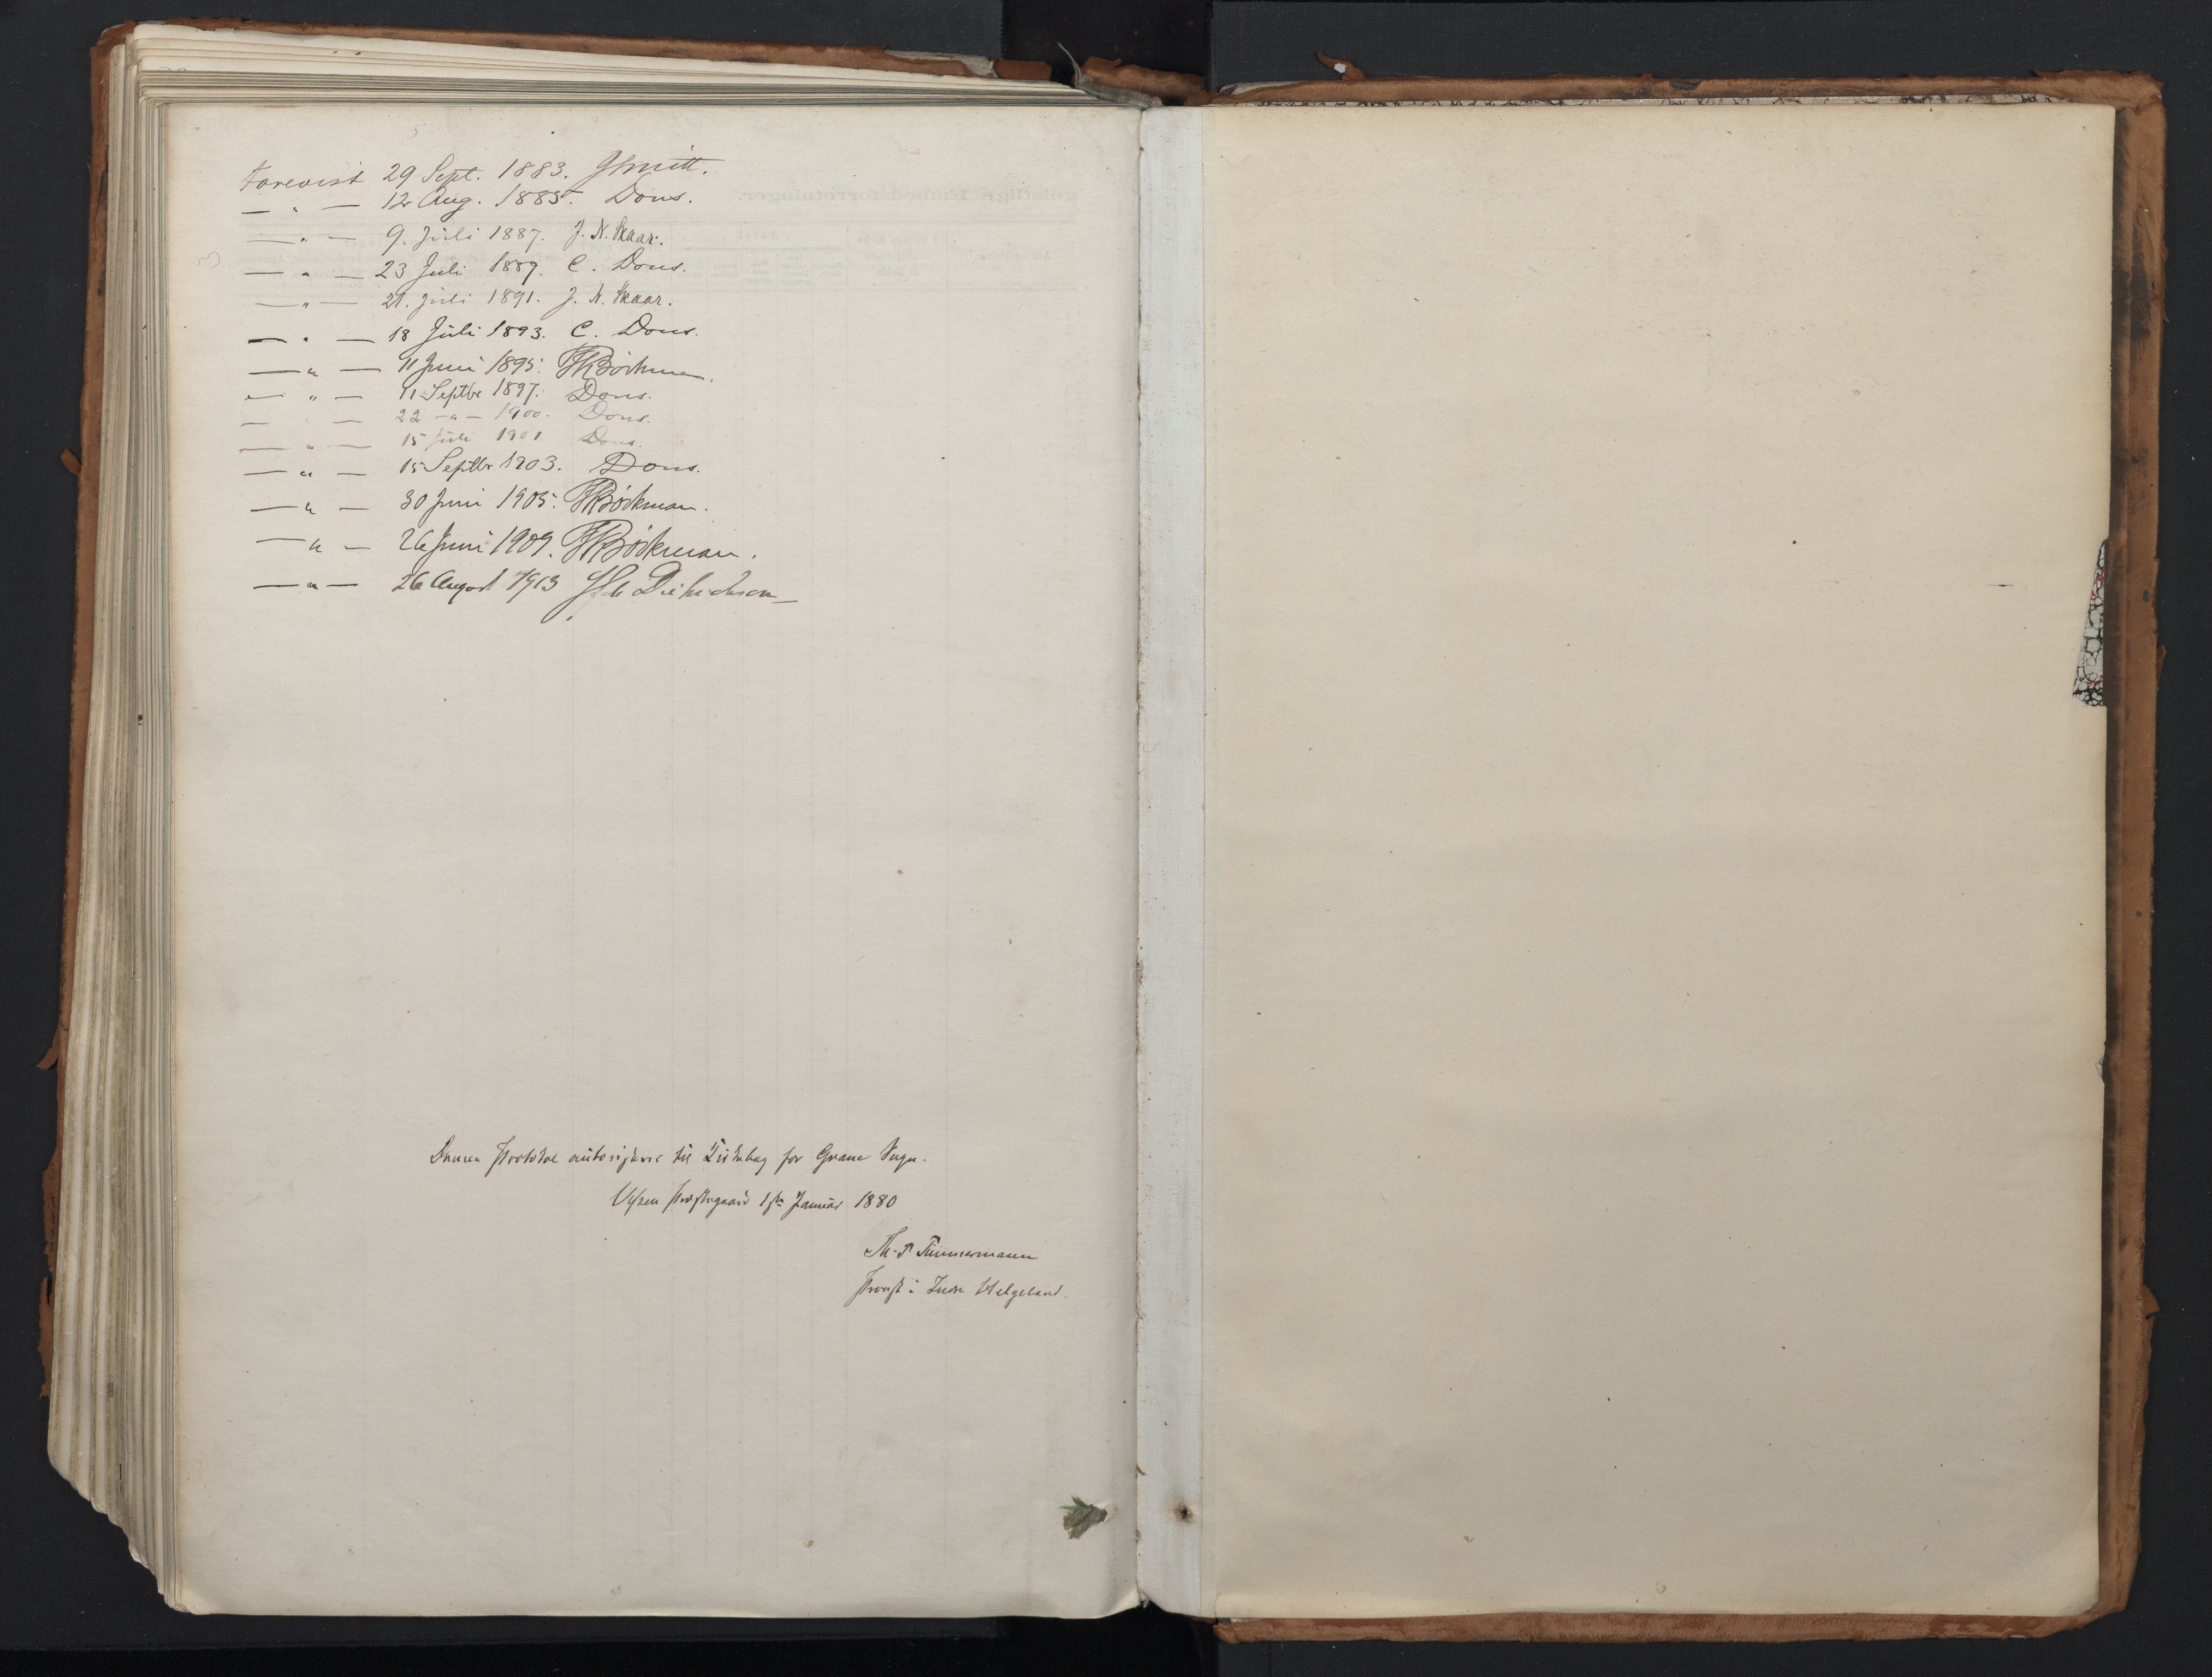 Forevist 29 Sept. 1883. JSmitt.
— " — 12 Aug. 1885. Dons.
— " — 9. Juli 1887. J. N. Skaar.
— " — 23 Juli 1889. C. Dons.
— " — 21. Juli 1891. J. N. Skaar.
— " — 18 Juli 1893. C. Dons.
— " — 11 Juni 1895. Bøckman.
— " — 11 Septbr 1897. Dons.
— — 22 — " — 1900. Dons.
— " — 15 Juli 1901 Dons.
— " — 15 Septbr 1903. Dons.
— " — 30 Juni 1905. Bøckman.
— " — 26 Juni 1909. Bøckman.
— " — 26 August 1913 Dietrichson
Denne Protokol autoriseres til Kirkebog for Grane Sogn.
Vefsen Præstegaard 1ste Januar 1880
Th. P. Timmermann
Provst i Indre Helgeland.